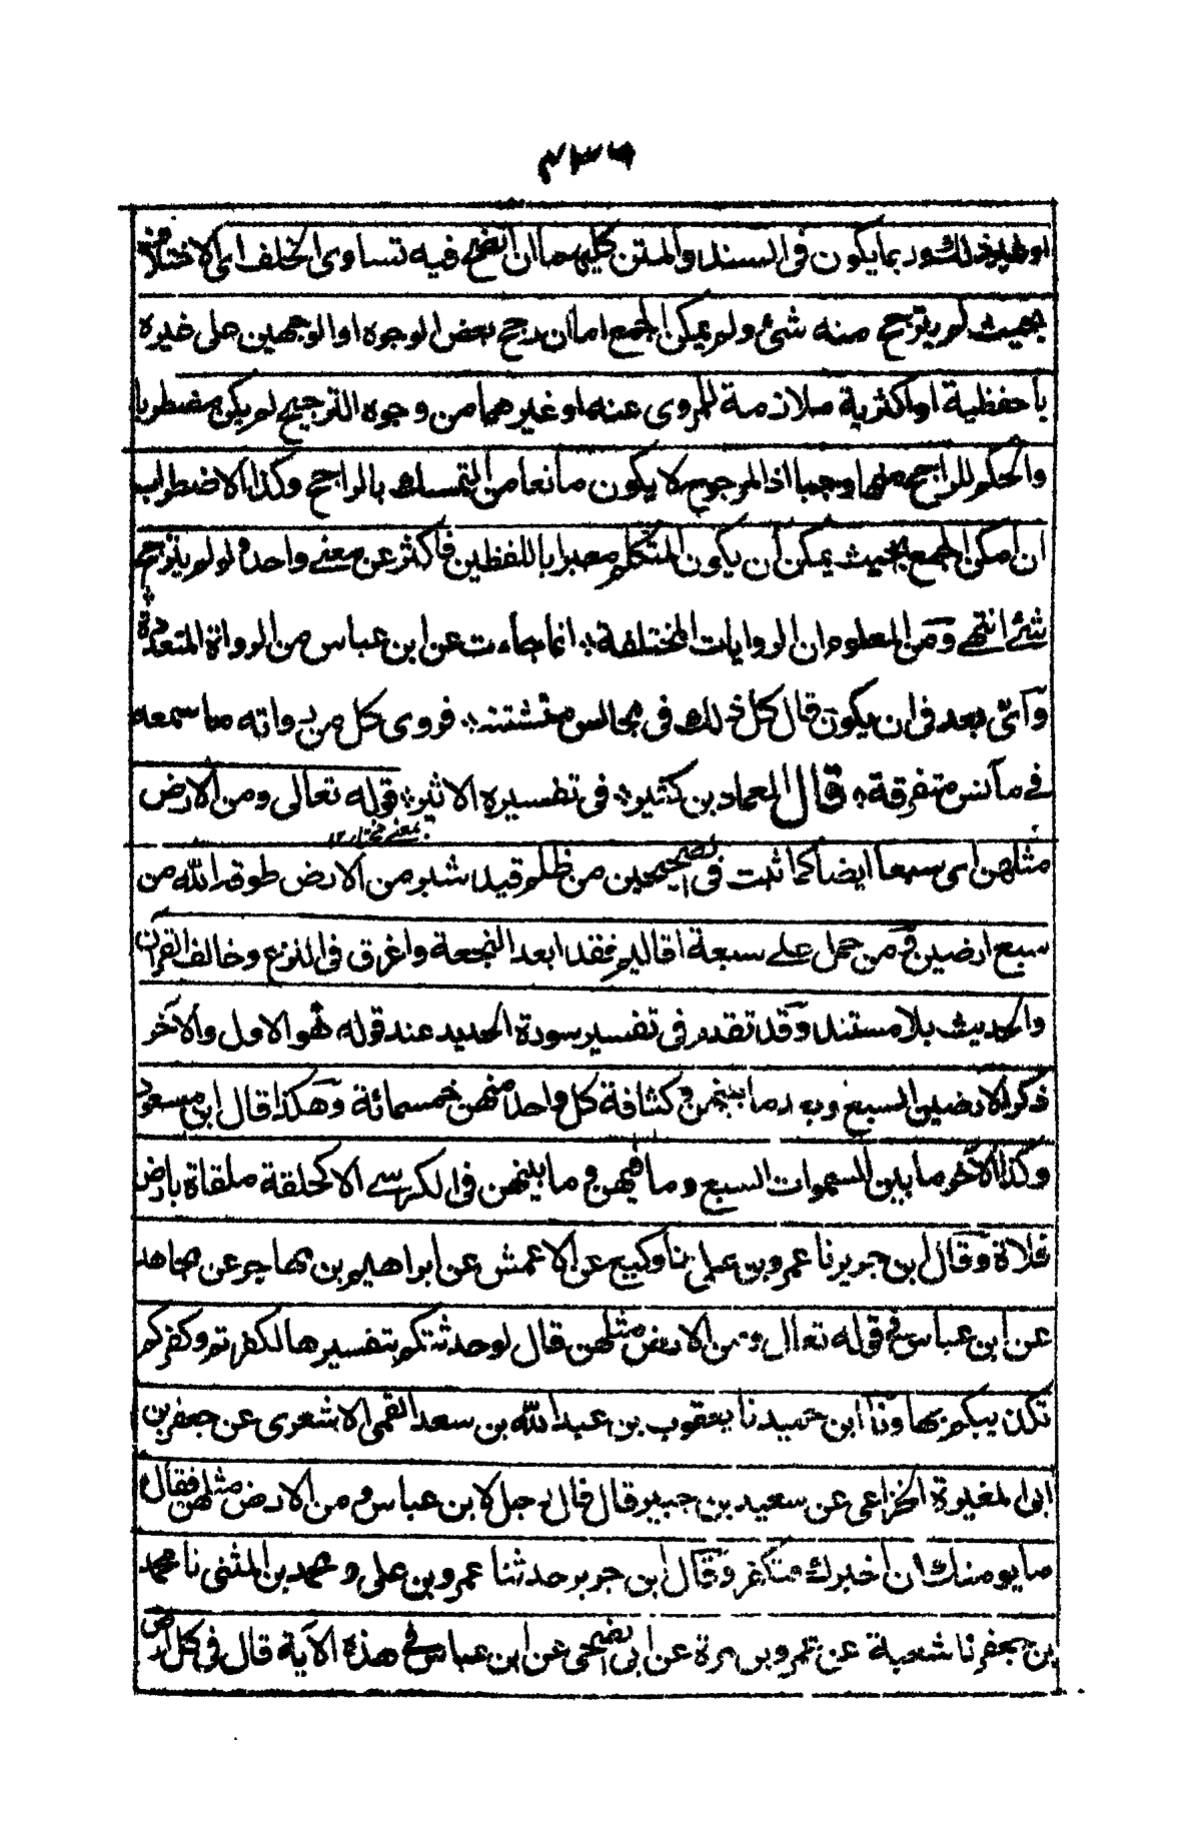 او غير ذلك وربما يكون في السند والمتن كليهما ان اتضح فيه تساوى الخلف اى الاختلاف
بحيث لم يترجح منه شئ ولم يمكن الجمع اما ان رجح بعض الوجوه او الوجهين على غيره
باحفظية او اكثرية ملازمة للمروى عنه او غيرهما من وجوه الترجيح لم يكن مضطربا
والحكم للراجح منهما وجبا اذ المرجوح لا يكون مانعا من التمسك بالراجح وكذا لا اضطراب
ان امكن الجمع بحيث يمكن ان يكون المتكلم معبرا باللفظين فاكثر عن معنے واحد ولو لم يترجح
شئ انتهے ومن المعلوم ان الروايات المختلفة انما جاءت عن ابن عباس من الرواة المتعددة
وآىّ بعد فى ان يكون قال كل ذلك فى مجالس متشتته فروى كل من رواته ما سمعه
فے مآنس متفرقة قال العماد بن كثير فى تفسيره الاثير قوله تعالى ومن الارض
مثلهن اى سبعا ايضا كما ثبت فى الصحيحين من ظلم قيد شبر من الارض طوقه الله من
سبع ارضين ومن حمل علے سبعة اقاليم فقد ابعد النجعة واغرق فى النزع وخالف القرآن
والحديث بلا مستند وقد تقدم فى تفسير سورة الحديد عند قوله هو الاول والآخر
ذكر الارضين السبع وبعد ما بينهن وكثافة كل واحد منهن خمسمائة وهكذا قال ابن مسعود
وكذا الآخر ما بين السموات السبع وما فيهن وما بينهن فى الكرسے الا كحلقة ملقاة بارض
فلاة وقال ابن جرير نا عمرو بن على نا وكيع عن الاعمش عن ابراهيم بن مهاجر عن مجاهد
عن ابن عباس فى قوله تعالى ومن الارض مثلهن قال لو حدثتكم بتفسيرها لكفرتم وكفركم
تكذيبكم بها ونا ابن حميد نا يعقوب بن عبد الله بن سعد القمى الاشعرى عن جعفر بن
ابى المغيرة الخزاعى عن سعيد بن جبير قال قال رجل لابن عباس ومن الارض مثلهن فقال
ما يومنك ان اخبرك فتكفر وقال ابن جرير حدثنا عمرو بن على ومحمد بن المثنى نا محمد
بن جعفر نا شعبة عن عمرو بن مرة عن ابى الضحى عن ابن عباس فى هذه الآية قال فى كل ارض